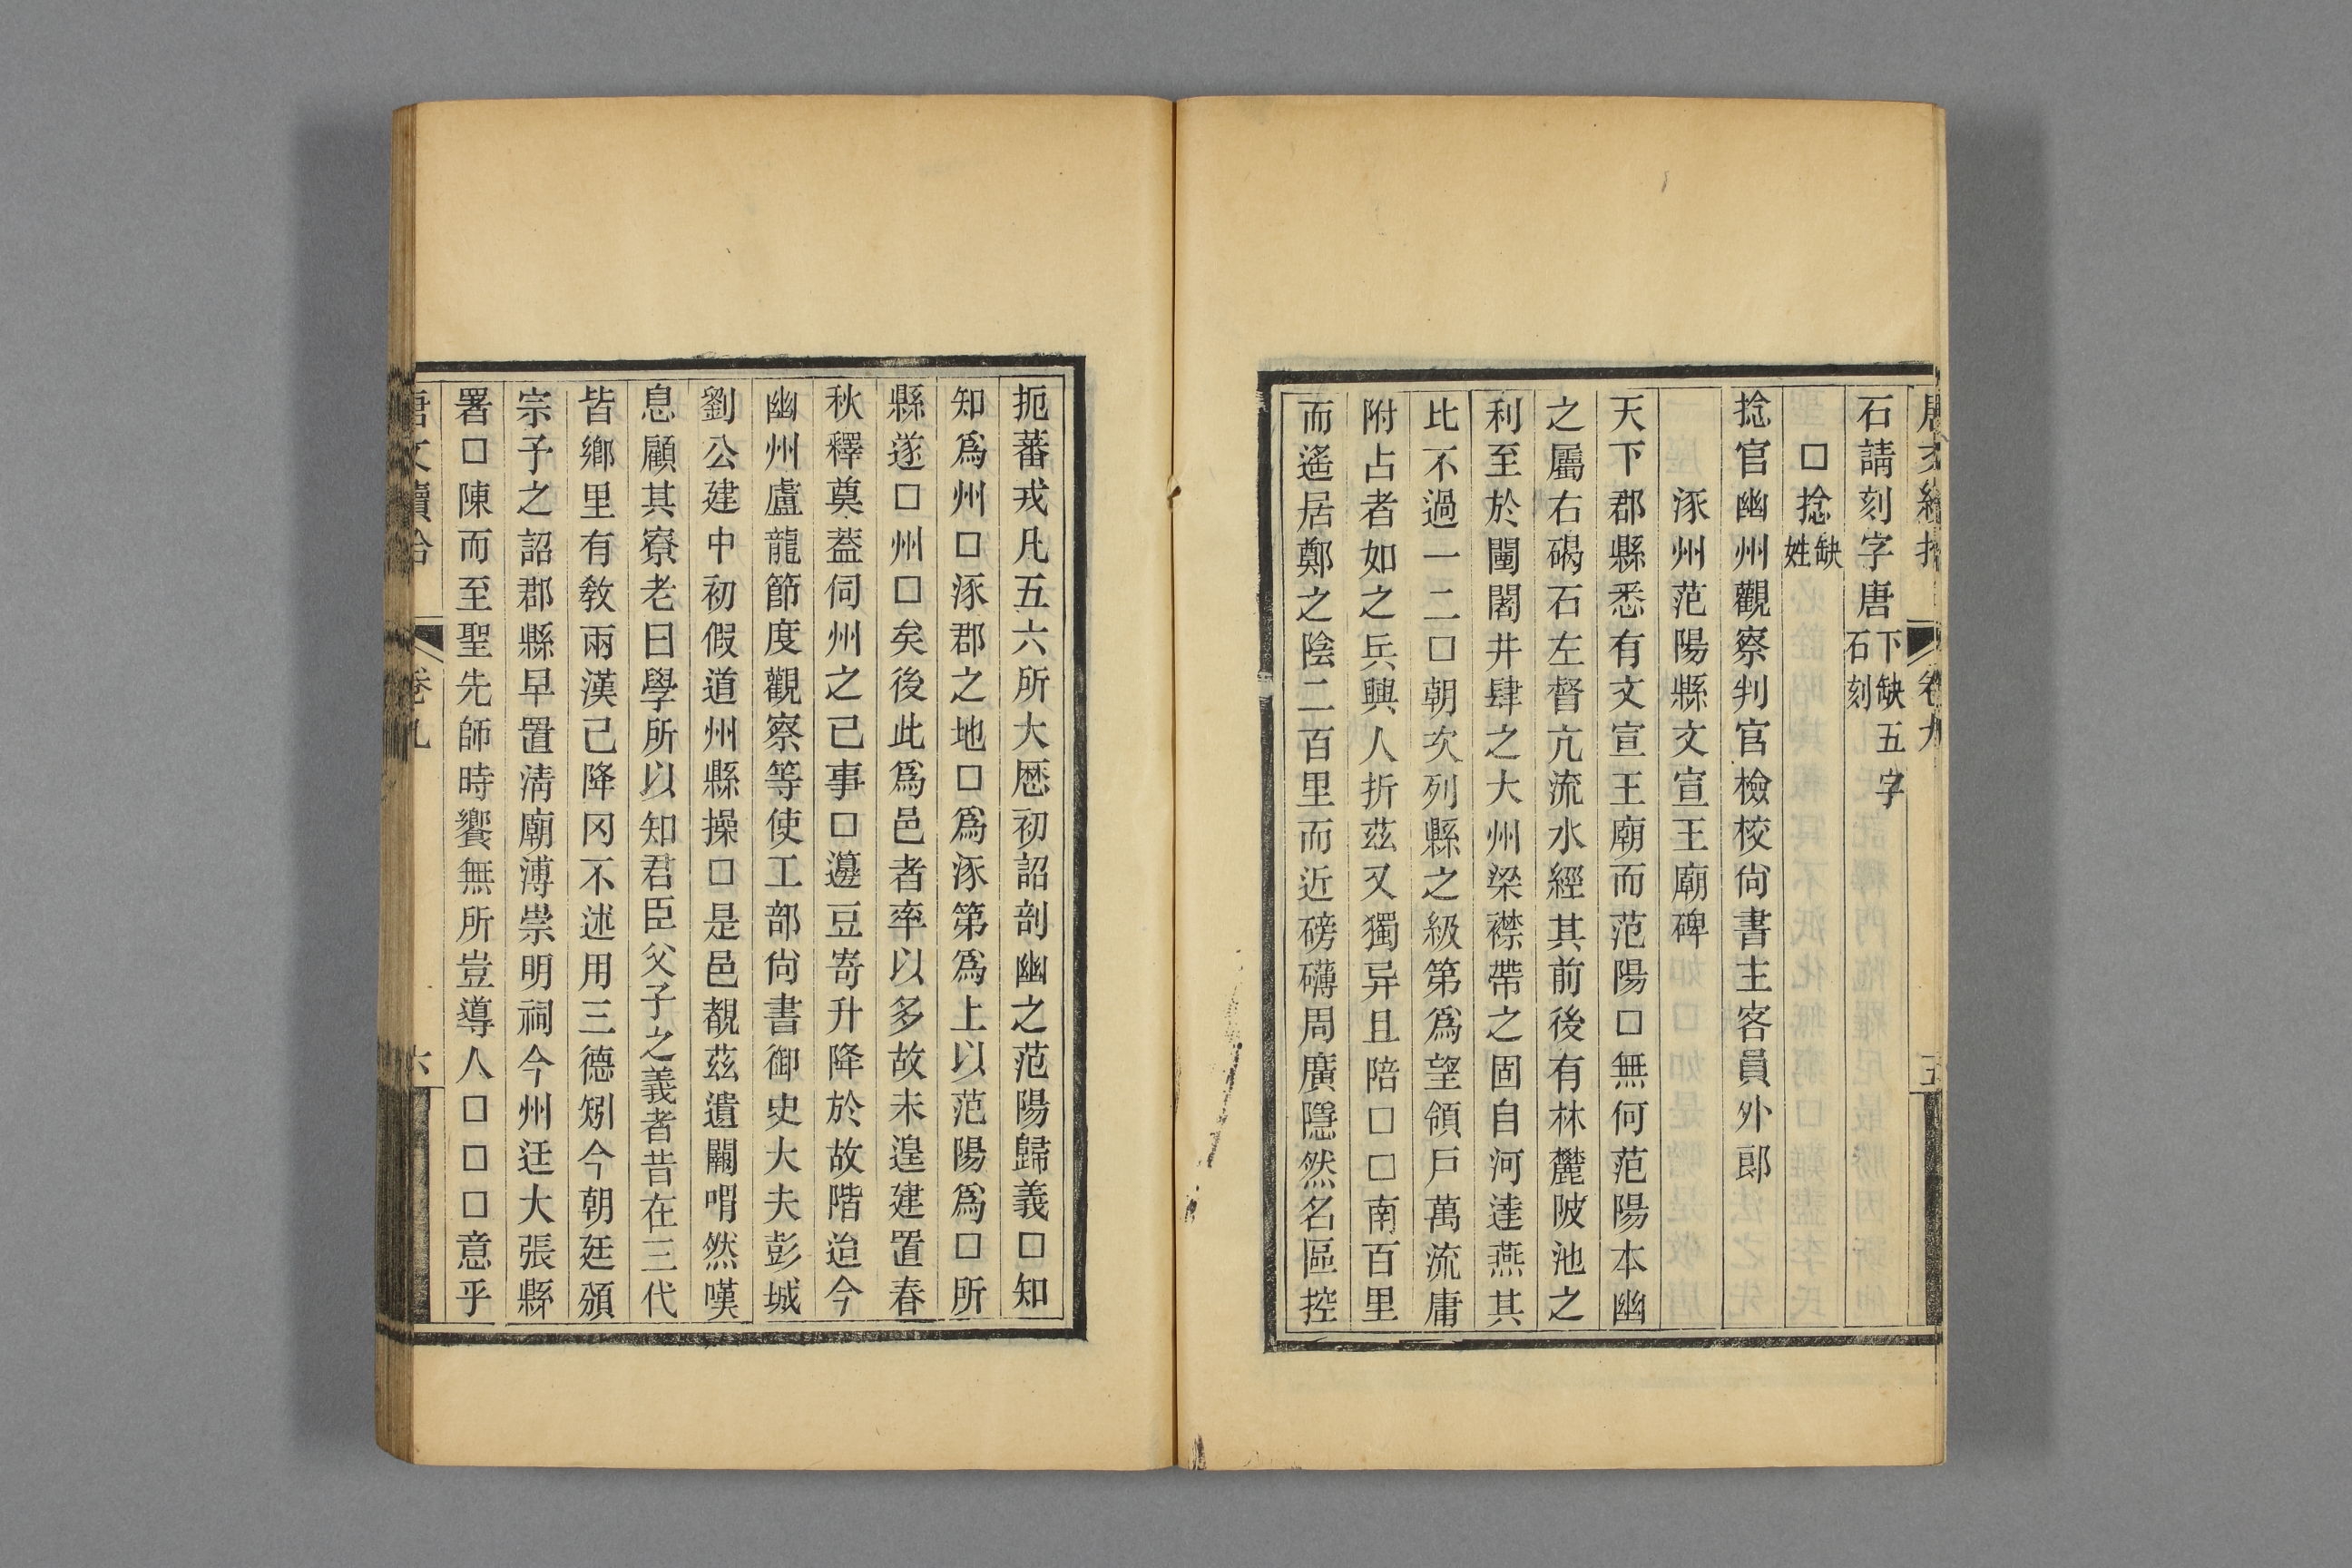 唐文續拾
卷九
五
石請刻字唐下缺五字石刻
□捻缺姓
捻官幽州觀察判官檢校尚書主客員外郎
涿州范陽縣文宣王廟碑
天下郡縣悉有文宣王廟而范陽□無何范陽本幽
之屬右碣石左督亢流水經其前後有林麓陂池之
利至於闤闠井肆之大州梁襟帶之固自河達燕其
比不過一二□朝次列縣之級第爲望領戸萬流庸
附占者如之兵興人折茲又獨异且陪□□南百里
而遙居鄭之陰二百里而近磅礴周廣隱然名區控
扼蕃戎凡五六所大厯初詔剖幽之范陽歸義□知
知爲州□涿郡之地□爲涿第爲上以范陽爲□所
縣遂□州□矣後此爲邑者率以多故未遑建置春
秋釋奠葢伺州之已事□籩豆寄升降於故階迨今
幽州盧龍節度觀察等使工部尙書御史大夫彭城
劉公建中初假道州縣操□是邑覩茲遺闕喟然嘆
息顧其寮老曰學所以知君臣父子之義者昔在三代
皆鄉里有敎兩漢己降冈不述用三德矧今朝廷頒
宗子之詔郡縣早置淸廟溥崇明祠今州廷大張縣
署□陳而至聖先師時饗無所豈導人□□□意乎
唐文續拾
卷九
六